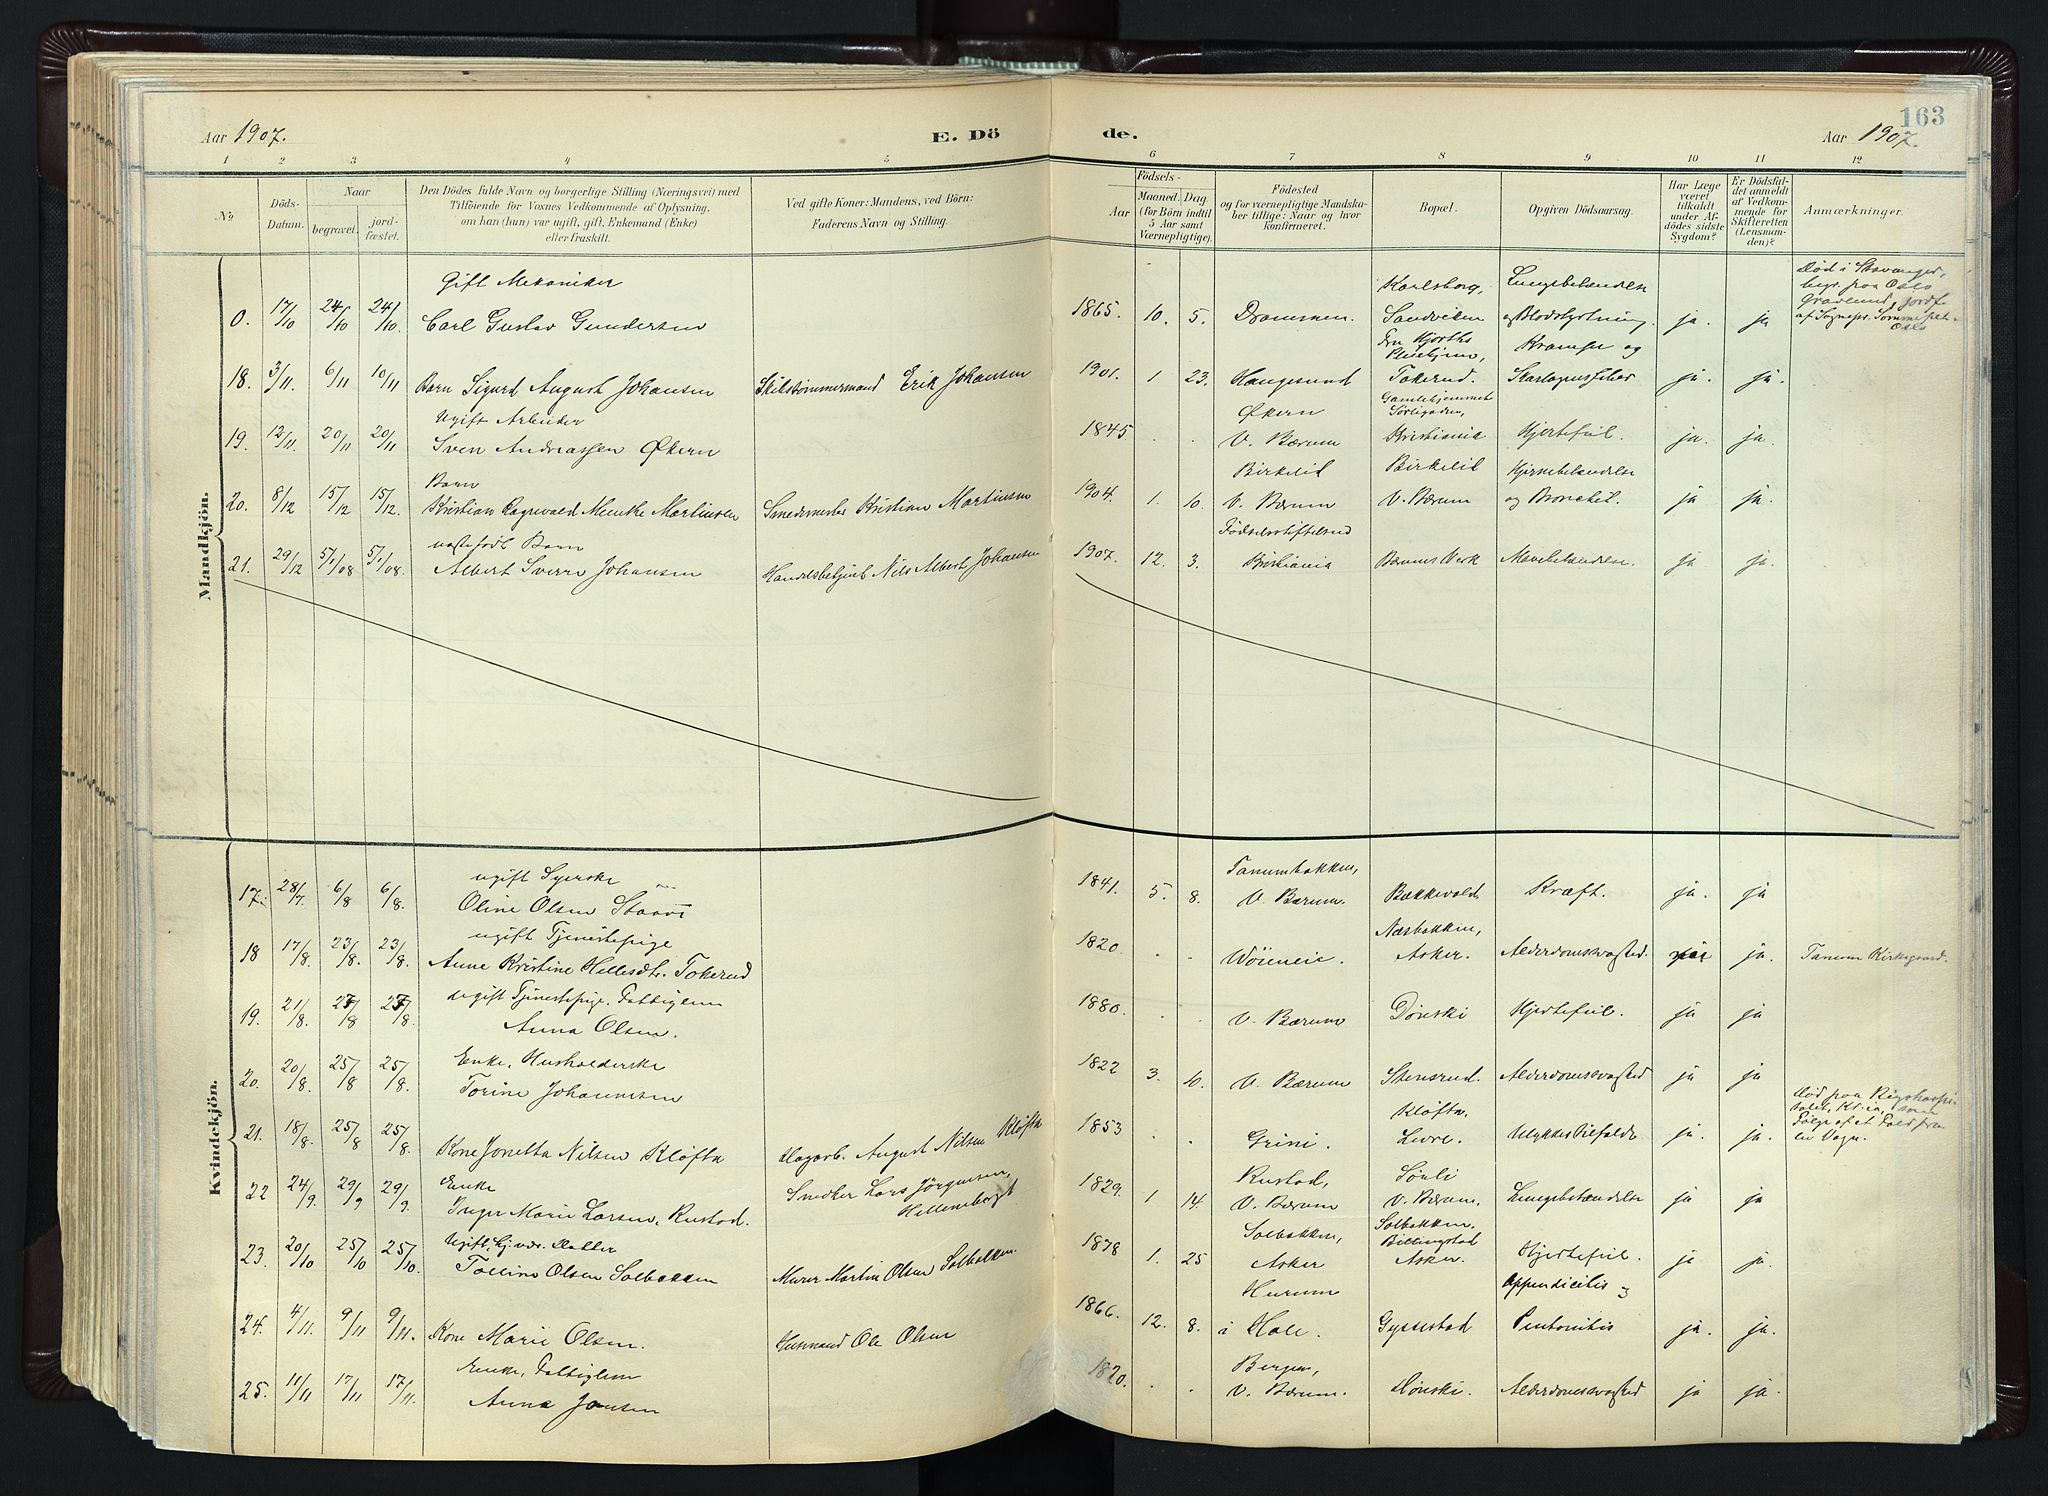 163
Aar 1907. E. Dö de. Aar 1907.
1 2 3 4 5 6 7 8 9 10 11 12
No
Döds-Datum.
Naar
begravet. jord-fæstet.
Den Dödes fulde Navn og borgerlige Stilling (Næringsvei) med
Tilföiende for Voxnes Vedkommende af Oplysning,
om han (hun) var ugift, gift, Enkemand (Enke)
eller fraskilt.
Ved gifte Koner: Mandens, ved Börn:
Faderens Navn og Stilling.
Födsels-
Aar Maaned. Dag
(for Börn indtil
5 Aar samt
Værnepligtige).
Födested
og for værnepligtige Mandska-
ber tillige: Naar og hvor
konfirmeret.
Bopæl.
Opgiven Dödsaarsag.
Har Læge
været
tilkaldt
under Af-
dödes sidste
Sygdom?
Er Dödsfal-
det anmeldt
af Vedkom-
mende for
Skifteretten
(Lensman-
den)?
Anmærkninger.
Mandkjön.
Gift Mekaniker Karlsborg, Lungebetændelse Död i Stavanger,
0. 17/10 24/10 24/10 Carl Gustav Gundersen 1865. 10. 5. Drammen. Sandviken og Blodstyrtning. ja. ja
Fru Hjorths Pleiehjem, Krampe og
18. 3/11. 6/11 10/11 Barn Sigurd August Johansen Skibstømmermand Erik Johansen 1901. 1 23. Haugesund Tokerud. Skarlagensfeber ja. ja.
Ugift Arbeider Økern Gamlehjemmet
19. 12/11. 20/11 20/11 Sven Andreassen Økern 1845 . . V. Bærum Kristiania Hjertefeil. ja. ja.
Barn Birkelid Birkelid Hjernebetændelse
20. 8/12 15/12 15/12. Kristian Ragnvald Menke Martinsen Smedemester Kristian Martinsen 1904. 1. 10. V. Bærum V. Bærum og Bronchit. ja ja.
ægtefødt Barn Fødselsstiftelsen
21. 29/12 5/1/08 5/1/08. Albert Sverre Johansen Handelsbetjent Nils Albert Johansen 1907. 12. 3. Kristiania Bærums Verk Mavebetændelse. ja ja.
Kvindekjön.
ugift Syerske Tanumbakken,
17. 28/7. 6/8 6/8. Oline Olsen 1841. 5. 8. V. Bærum. Bakkevold Kræft. ja. ja
ugift Tjenestepige Næsbakken,
18 17/8. 23/8. 23/8. Anne Kristine Hellesdtr. Tokerud 1820. . . Wöieneie. Asker. Alderdomssvaghed. nei ja. Tanum Kirkegaard.
ugift Tjenestepige. Fattiglem
19. 21/8. 27/8 27/8. Anna Olsen. 1880. . . V. Bærum Dönski Hjertefeil. ja ja
Enke, Husholderske
20. 20/8. 25/8 25/8. Torine Johannesen 1822 3. 10. V. Bærum Stensrud. Alderdomssvaghed ja ja
Kløfta, Död paa Rigshospi-
talet, Kr.ia, som
Følge af et Fald fra
en Vogn.
21. 18/8. 25/8 25/8. Kone Jonetta Nilsen Kløfta Dagarb. August Nilsen Kløfta 1853 . . Grini. Livre. Ulykkestilfælde ja. ja.
Enke Smelter Lars Jörgensen, Rustad, Sönli
22 24/9. 29/9 29/9. Inger Marie Larsen, Rustad. 1829. 1 14. V. Bærum V. Bærum. Lungebetændelse ja ja
Ugift, hj.vær. Datter Solbakken, Solbakken, Billingstad
23. 20/10 25/10 25/10. Solbakken Murer Martin Olsen Solbakken. 1878 1. 25 Asker Asker. Hjertefeil. ja ja.
Hurum Appendicitis og
24. 4/11. 9/11 9/11. Kone Marie Olsen. Husmand Ole Olsen 1866. 12. 8. i Hole. Gyssestad ja. ja.
Enke, Fattiglem
25. 11/11 17/11 17/11. Anna Jonsen 1820. . . V. Bærum. Dönski. Alderdomssvaghed ja ja.